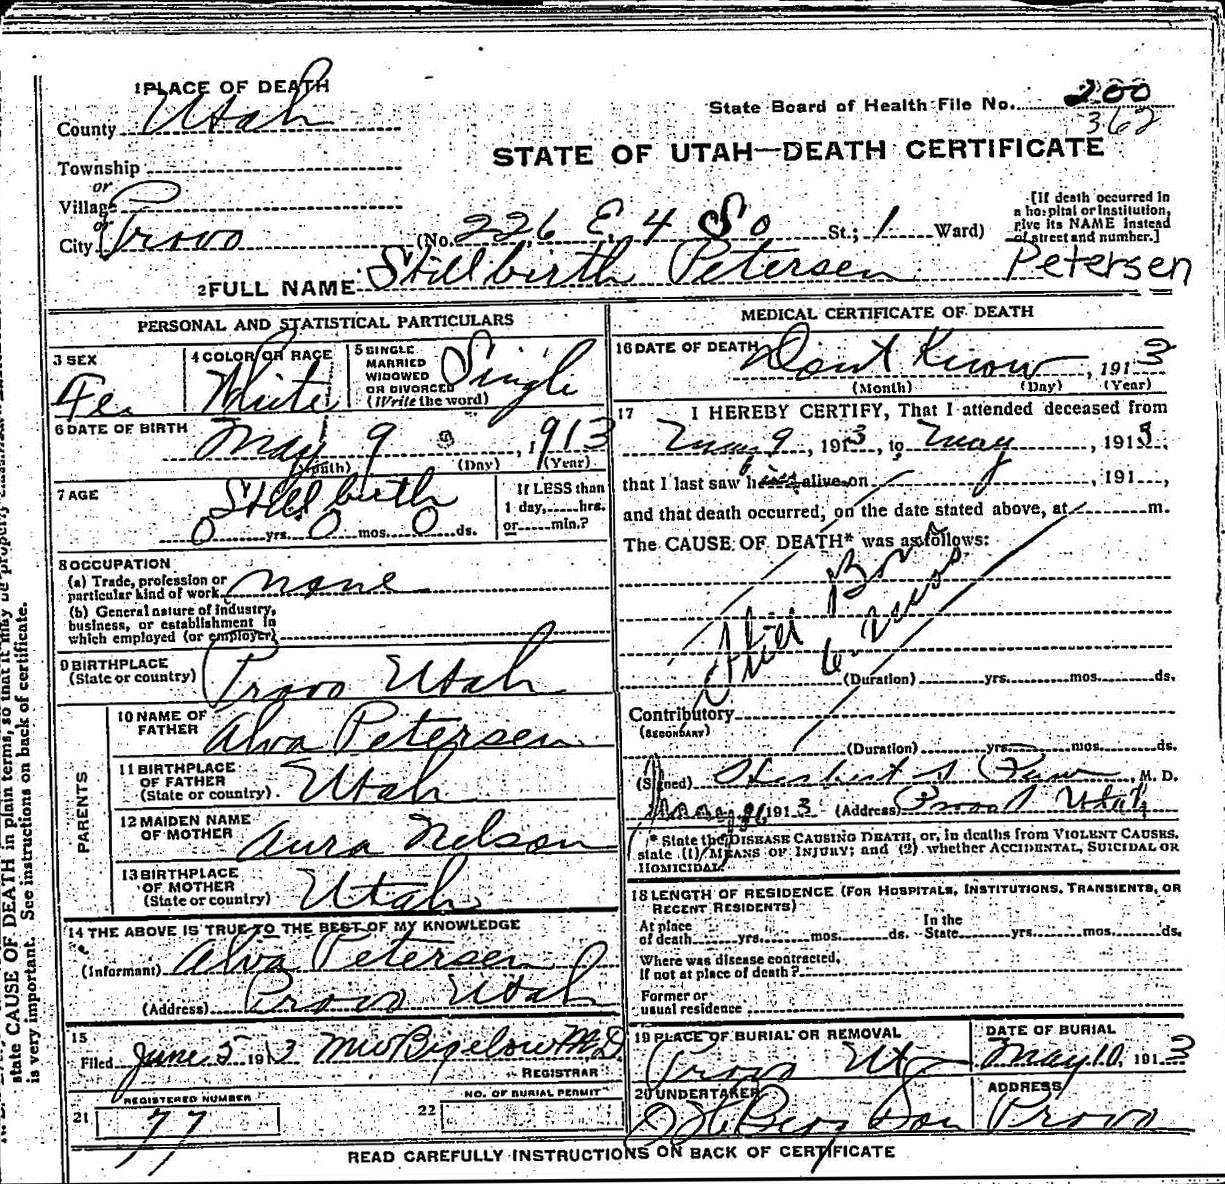 1 PLACE OF DEATH
County Utah
State Board of Health File No. 200
362
Township
STATE OF UTAH—DEATH CERTIFICATE
or
Village
or
City Provo (No. 226 E. 4 So St.; 1 Ward)
[If death occurred in a hospital or institution, give its NAME instead of street and number.]
2 FULL NAME Stillbirth Petersen
Petersen
PERSONAL AND STATISTICAL PARTICULARS
3 SEX Fe.
4 COLOR OR RACE White
5 SINGLE MARRIED WIDOWED OR DIVORCED (Write the word) Single
6 DATE OF BIRTH May 9, 1913
(Month) (Day) (Year)
7 AGE Stillbirth
0 yrs. 0 mos. 0 ds.
If LESS than 1 day, hrs. or min.?
8 OCCUPATION
(a) Trade, profession or particular kind of work none
(b) General nature of industry, business, or establishment in which employed (or employer)
9 BIRTHPLACE (State or country) Provo Utah
PARENTS
10 NAME OF FATHER Alva Petersen
11 BIRTHPLACE OF FATHER (State or country) Utah
12 MAIDEN NAME OF MOTHER Aura Nelson
13 BIRTHPLACE OF MOTHER (State or country) Utah
14 THE ABOVE IS TRUE TO THE BEST OF MY KNOWLEDGE
(Informant) Alva Petersen
(Address) Provo Utah
15
Filed June 5 1913 MW Bigelow M D
REGISTRAR
21 REGISTERED NUMBER
77
22 NO. OF BURIAL PERMIT
MEDICAL CERTIFICATE OF DEATH
16 DATE OF DEATH Dont Know, 1913
(Month) (Day) (Year)
17 I HEREBY CERTIFY, That I attended deceased from
9, 1913, to May, 1913,
that I last saw h alive on, 191 ,
and that death occurred, on the date stated above, at m.
The CAUSE OF DEATH* was as follows:
Still Born
6
(Duration) yrs. mos. ds.
Contributory
(SECONDARY)
(Duration) yrs. mos. ds.
(Signed) Herbert S, M. D.
1913 (Address) Provo Utah
* State the DISEASE CAUSING DEATH, or, in deaths from VIOLENT CAUSES, state (1) MEANS OF INJURY; and (2) whether ACCIDENTAL, SUICIDAL OR HOMICIDAL.
18 LENGTH OF RESIDENCE (FOR HOSPITALS, INSTITUTIONS, TRANSIENTS, OR RECENT RESIDENTS)
At place of death yrs. mos. ds. In the State yrs. mos. ds.
Where was disease contracted, if not at place of death?
Former or usual residence
19 PLACE OF BURIAL OR REMOVAL Provo Ut
DATE OF BURIAL May 10, 1913
20 UNDERTAKER Berg Son
ADDRESS Provo
READ CAREFULLY INSTRUCTIONS ON BACK OF CERTIFICATE
state CAUSE OF DEATH in plain terms, so that it may be properly
is very important. See instructions on back of certificate.